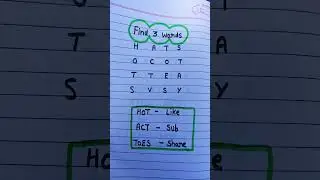 Find 3 words
H A T S
O C O T
T T E A
S V S Y
HOT - Like
ACT - Sub
TOES - Share